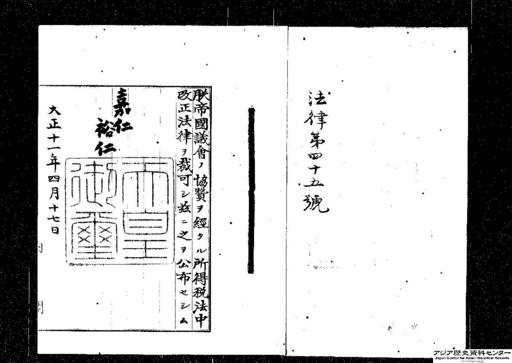 法律第四十五號
朕帝國議會ノ協賛ヲ經タル所得税法中
改正法律ヲ裁可シ茲ニ之ヲ公布セシム
嘉仁
裕仁
天皇
御璽
大正十一年四月十七日
内 閣
アジア歴史資料センター
Japan Center for Asian Historical Records